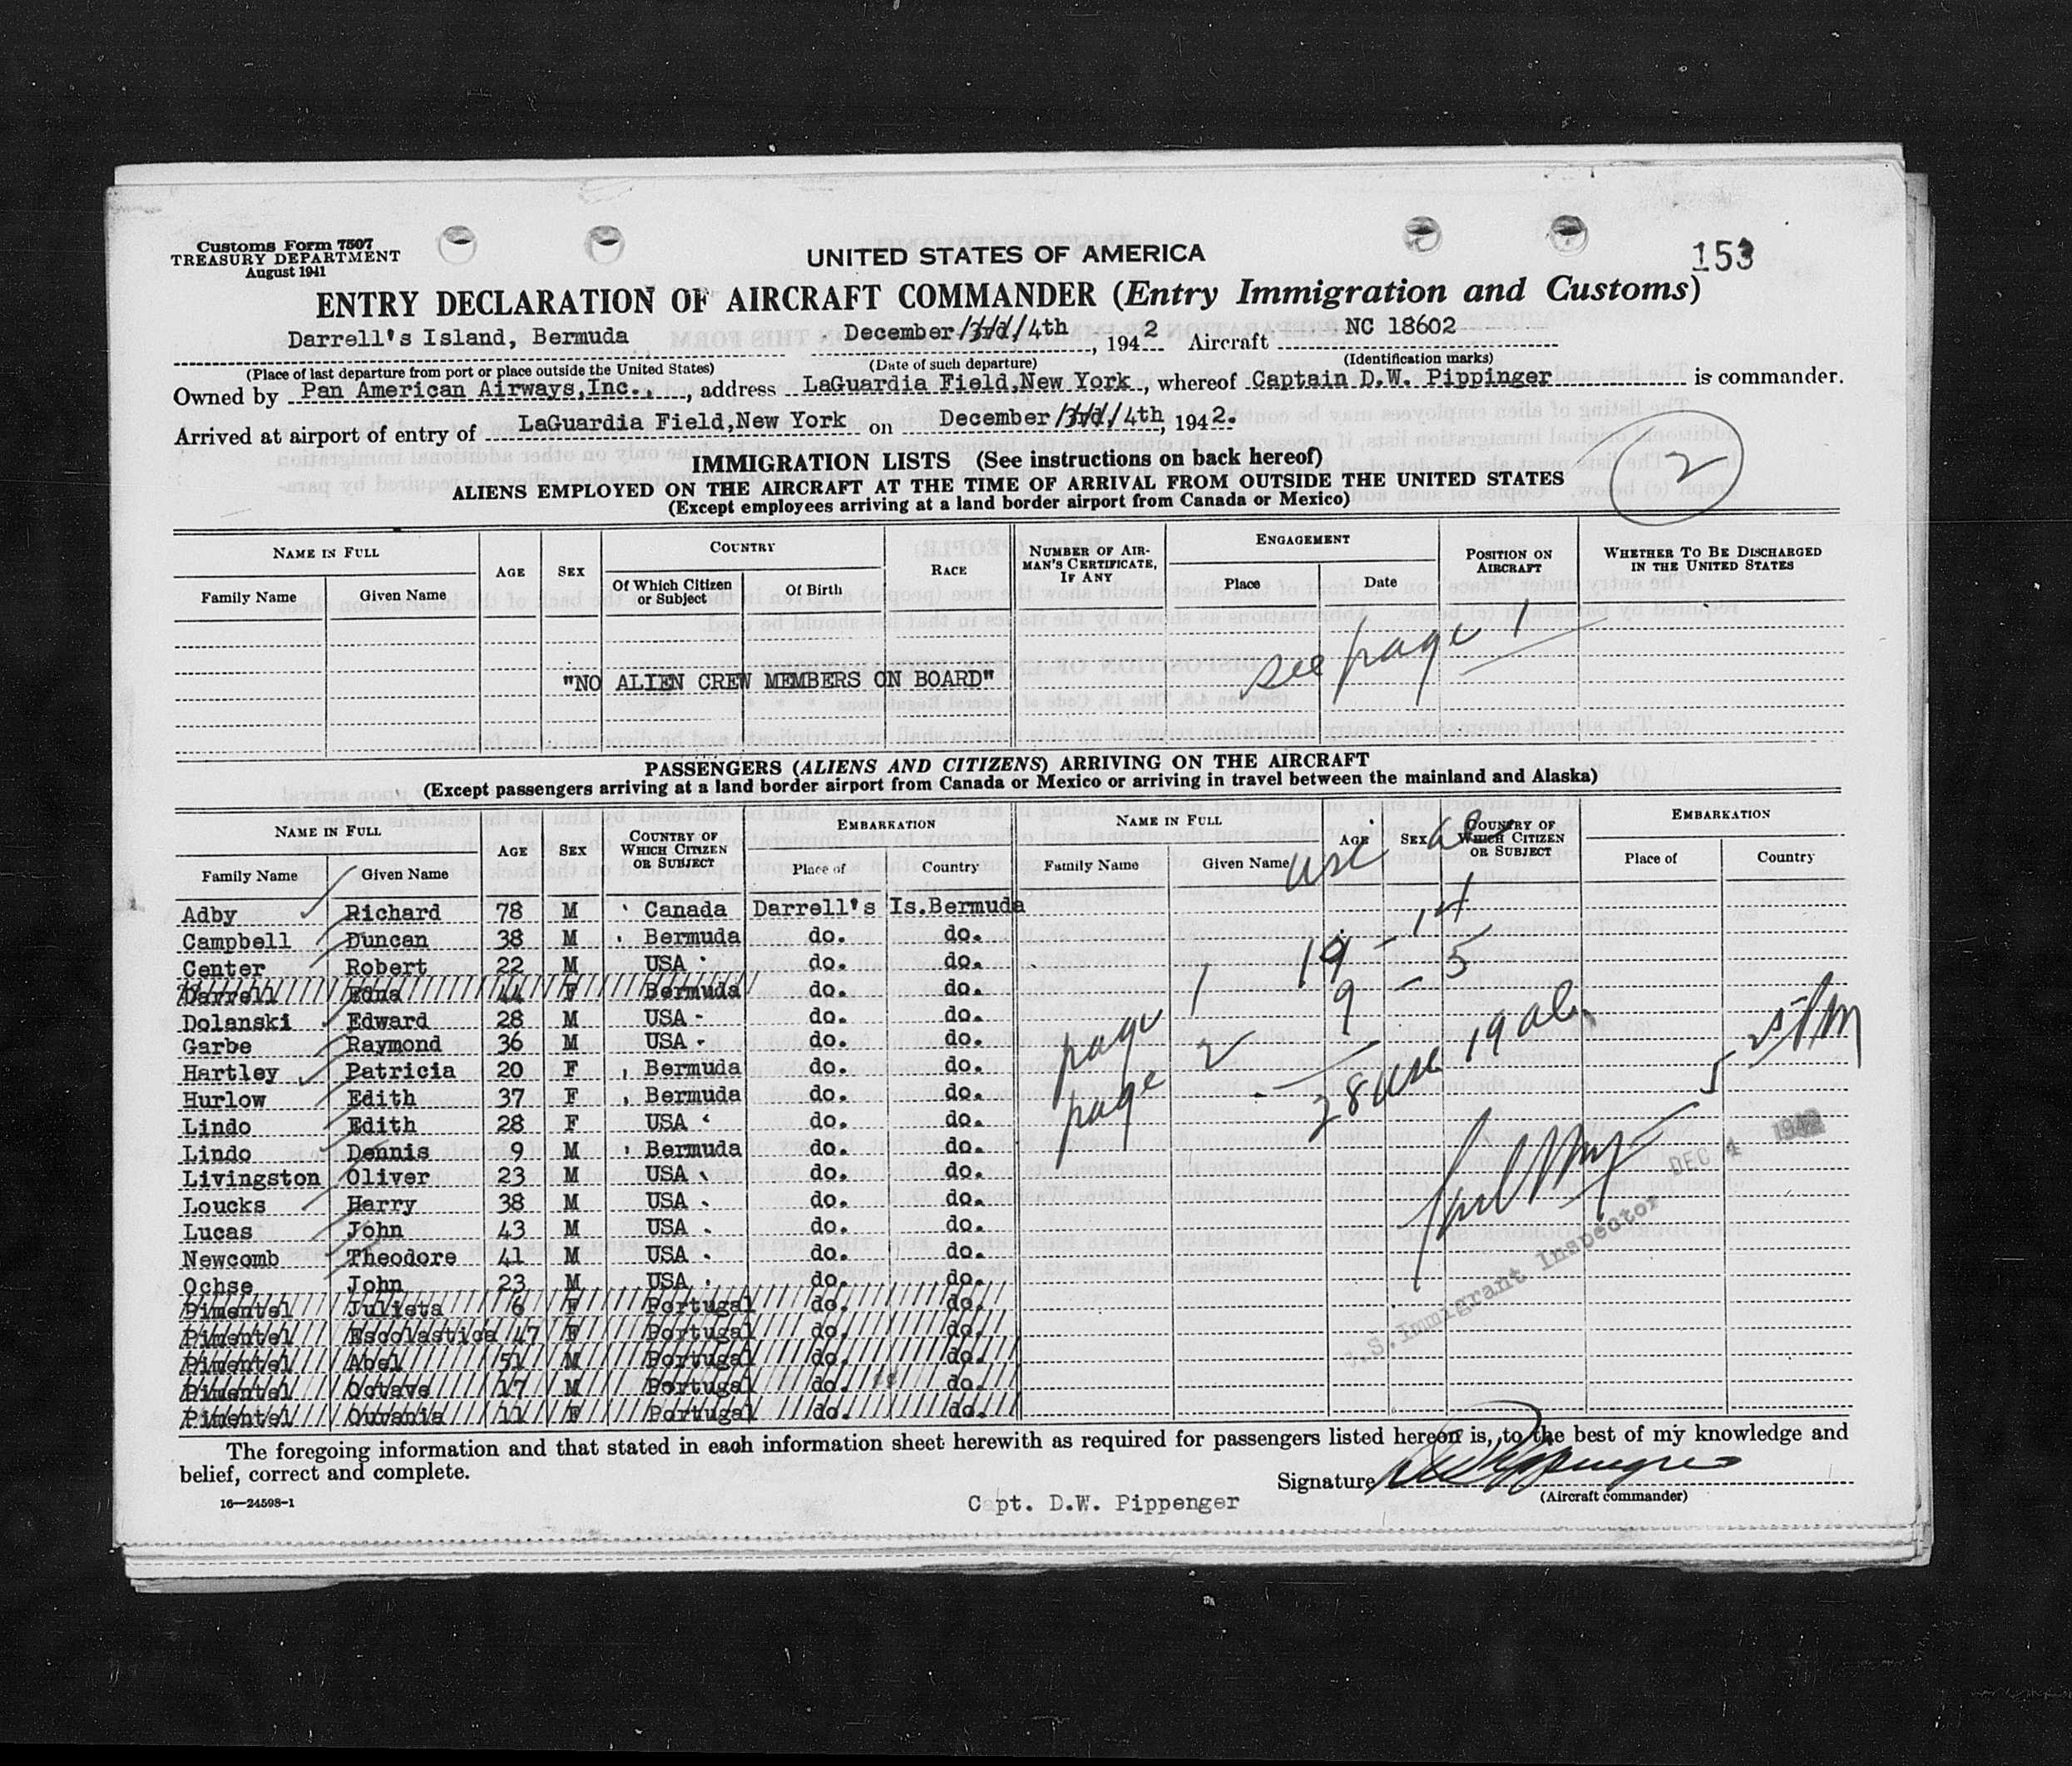 Customs Form 7507
TREASURY DEPARTMENT
August 1941
UNITED STATES OF AMERICA
153
ENTRY DECLARATION OF AIRCRAFT COMMANDER (Entry Immigration and Customs)
Darrell's Island, Bermuda December 3rd, 4th, 1942 Aircraft NC 18602
(Place of last departure from port or place outside the United States) (Date of such departure) (Identification marks)
Owned by Pan American Airways,Inc., address LaGuardia Field,New York, whereof Captain D.W. Pippinger is commander.
Arrived at airport of entry of LaGuardia Field,New York on December 3rd, 4th, 1942.
2
IMMIGRATION LISTS (See instructions on back hereof)
ALIENS EMPLOYED ON THE AIRCRAFT AT THE TIME OF ARRIVAL FROM OUTSIDE THE UNITED STATES
(Except employees arriving at a land border airport from Canada or Mexico)
NAME IN FULL AGE SEX COUNTRY RACE NUMBER OF AIRMAN'S CERTIFICATE, IF ANY ENGAGEMENT POSITION ON AIRCRAFT WHETHER TO BE DISCHARGED IN THE UNITED STATES
Family Name Given Name Of Which Citizen or Subject Of Birth Place Date
see page 1
"NO ALIEN CREW MEMBERS ON BOARD"
PASSENGERS (ALIENS AND CITIZENS) ARRIVING ON THE AIRCRAFT
(Except passengers arriving at a land border airport from Canada or Mexico or arriving in travel between the mainland and Alaska)
NAME IN FULL AGE SEX COUNTRY OF WHICH CITIZEN OR SUBJECT EMBARKATION NAME IN FULL AGE SEX COUNTRY OF WHICH CITIZEN OR SUBJECT EMBARKATION
Family Name Given Name Place of Country Family Name Given Name Place of Country
Adby Richard 78 M Canada Darrell's Is.Bermuda
Campbell Duncan 38 M Bermuda do. do.
Center Robert 22 M USA do. do.
Darrell Edna 44 F Bermuda do. do.
Dolanski Edward 28 M USA do. do.
Garbe Raymond 36 M USA do. do.
Hartley Patricia 20 F Bermuda do. do.
Hurlow Edith 37 F Bermuda do. do.
Lindo Edith 28 F USA do. do.
Lindo Dennis 9 M Bermuda do. do.
Livingston Oliver 23 M USA do. do.
Loucks Harry 38 M USA do. do.
Lucas John 43 M USA do. do.
Newcomb Theodore 41 M USA do. do.
Ochse John 23 M USA do. do.
Pimentel Julieta 6 F Portugal do. do.
Pimentel Escolastica 47 F Portugal do. do.
Pimentel Abel 51 M Portugal do. do.
Pimentel Octave 17 M Portugal do. do.
Pimentel Ouvania 11 F Portugal do. do.
usc al
page 1 19 - 14
page 2 9 - 5
28 usc 19 al.
DEC 4 1942
U.S. Immigrant Inspector
The foregoing information and that stated in each information sheet herewith as required for passengers listed hereon is, to the best of my knowledge and
belief, correct and complete.
Signature
(Aircraft commander)
16—24598-1
Capt. D.W. Pippenger